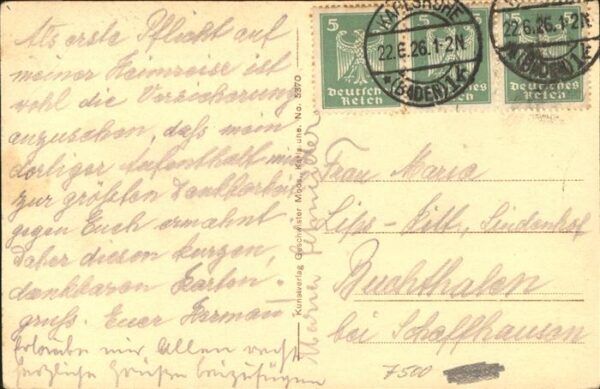 Als erste Pflicht auf
meiner Heimreise ist
wohl die Versicherung
anzusehen, dass mein
dortiger Aufenthalt mich
zur größten Dankbarkeit
gegen Euch ermahnt.
Daher diesen kurzen,
dankbaren Karten-
gruss. Euer Herman
Erlaube mir Allen recht
herzliche Grüße beizufügen
Maria
Kunstverlag Geschwister Moos, Karlsruhe. No. 5370
5
5
Deutsches Reich
Deutsches Reich
Deutsches Reich
KARLSRUHE
22.6.26.1-2N
*(BADEN)1k
KARLSRUHE
22.6.26.1-2N
*(BADEN)1k
Frau Maria
Lips-Ritt, Lindenhof
Buchthalen
bei Schaffhausen
7500